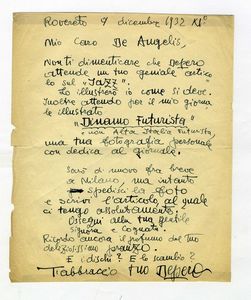 Rovereto 7 dicembre 1932 XI°
Mio Caro De Angelis,
Non ti dimenticare che Depero
attende un tuo geniale artico
lo sul "Jazz".
Lo illustrerò io come si deve.
Inoltre attendo per il mio giorna
le illustrato
"Dinamo Futurista"
e non Alta Italia Futurista,
una tua fotografia personale
con dedica al giornale.
Sarò di nuovo fra breve
a Milano, ma intanto
spedisci la foto
e scrivi l'articolo al quale
ci tengo assolutamente.
Ossequi alla tua gentile
Signora e Cognata.
Ricordo ancora il profumo del tuo
deliziosissimo pranzo.
E i dischi? E lo scambio?
T'abbraccio tuo Depero